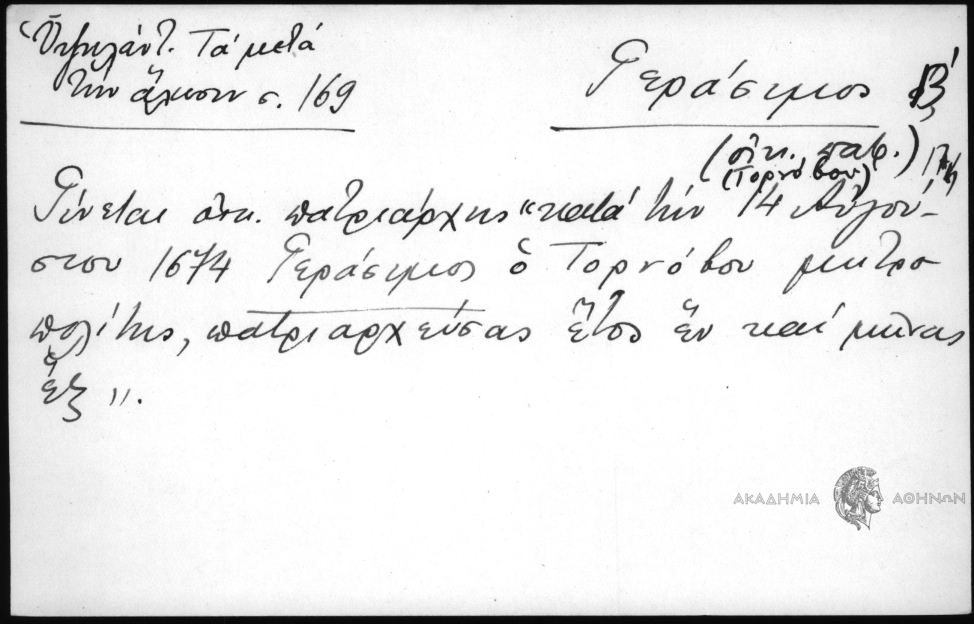 Ὑψηλάντ. Τά μετά
τήν ἅλωσιν σ. 169
Γεράσιμος Β΄
(οἰκ. πατρ.)
(Τορνόβου)
Γίνεται οἰκ. πατριάρχης "κατά τήν 14 Αὐγού-
στου 1674 Γεράσιμος ὁ Τορνόβου μητρο
πολίτης, πατριαρχεύσας ἔτος ἕν καί μῆνας
ἕξ".
ΑΚΑΔΗΜΙΑ ΑΘΗΝΩΝ